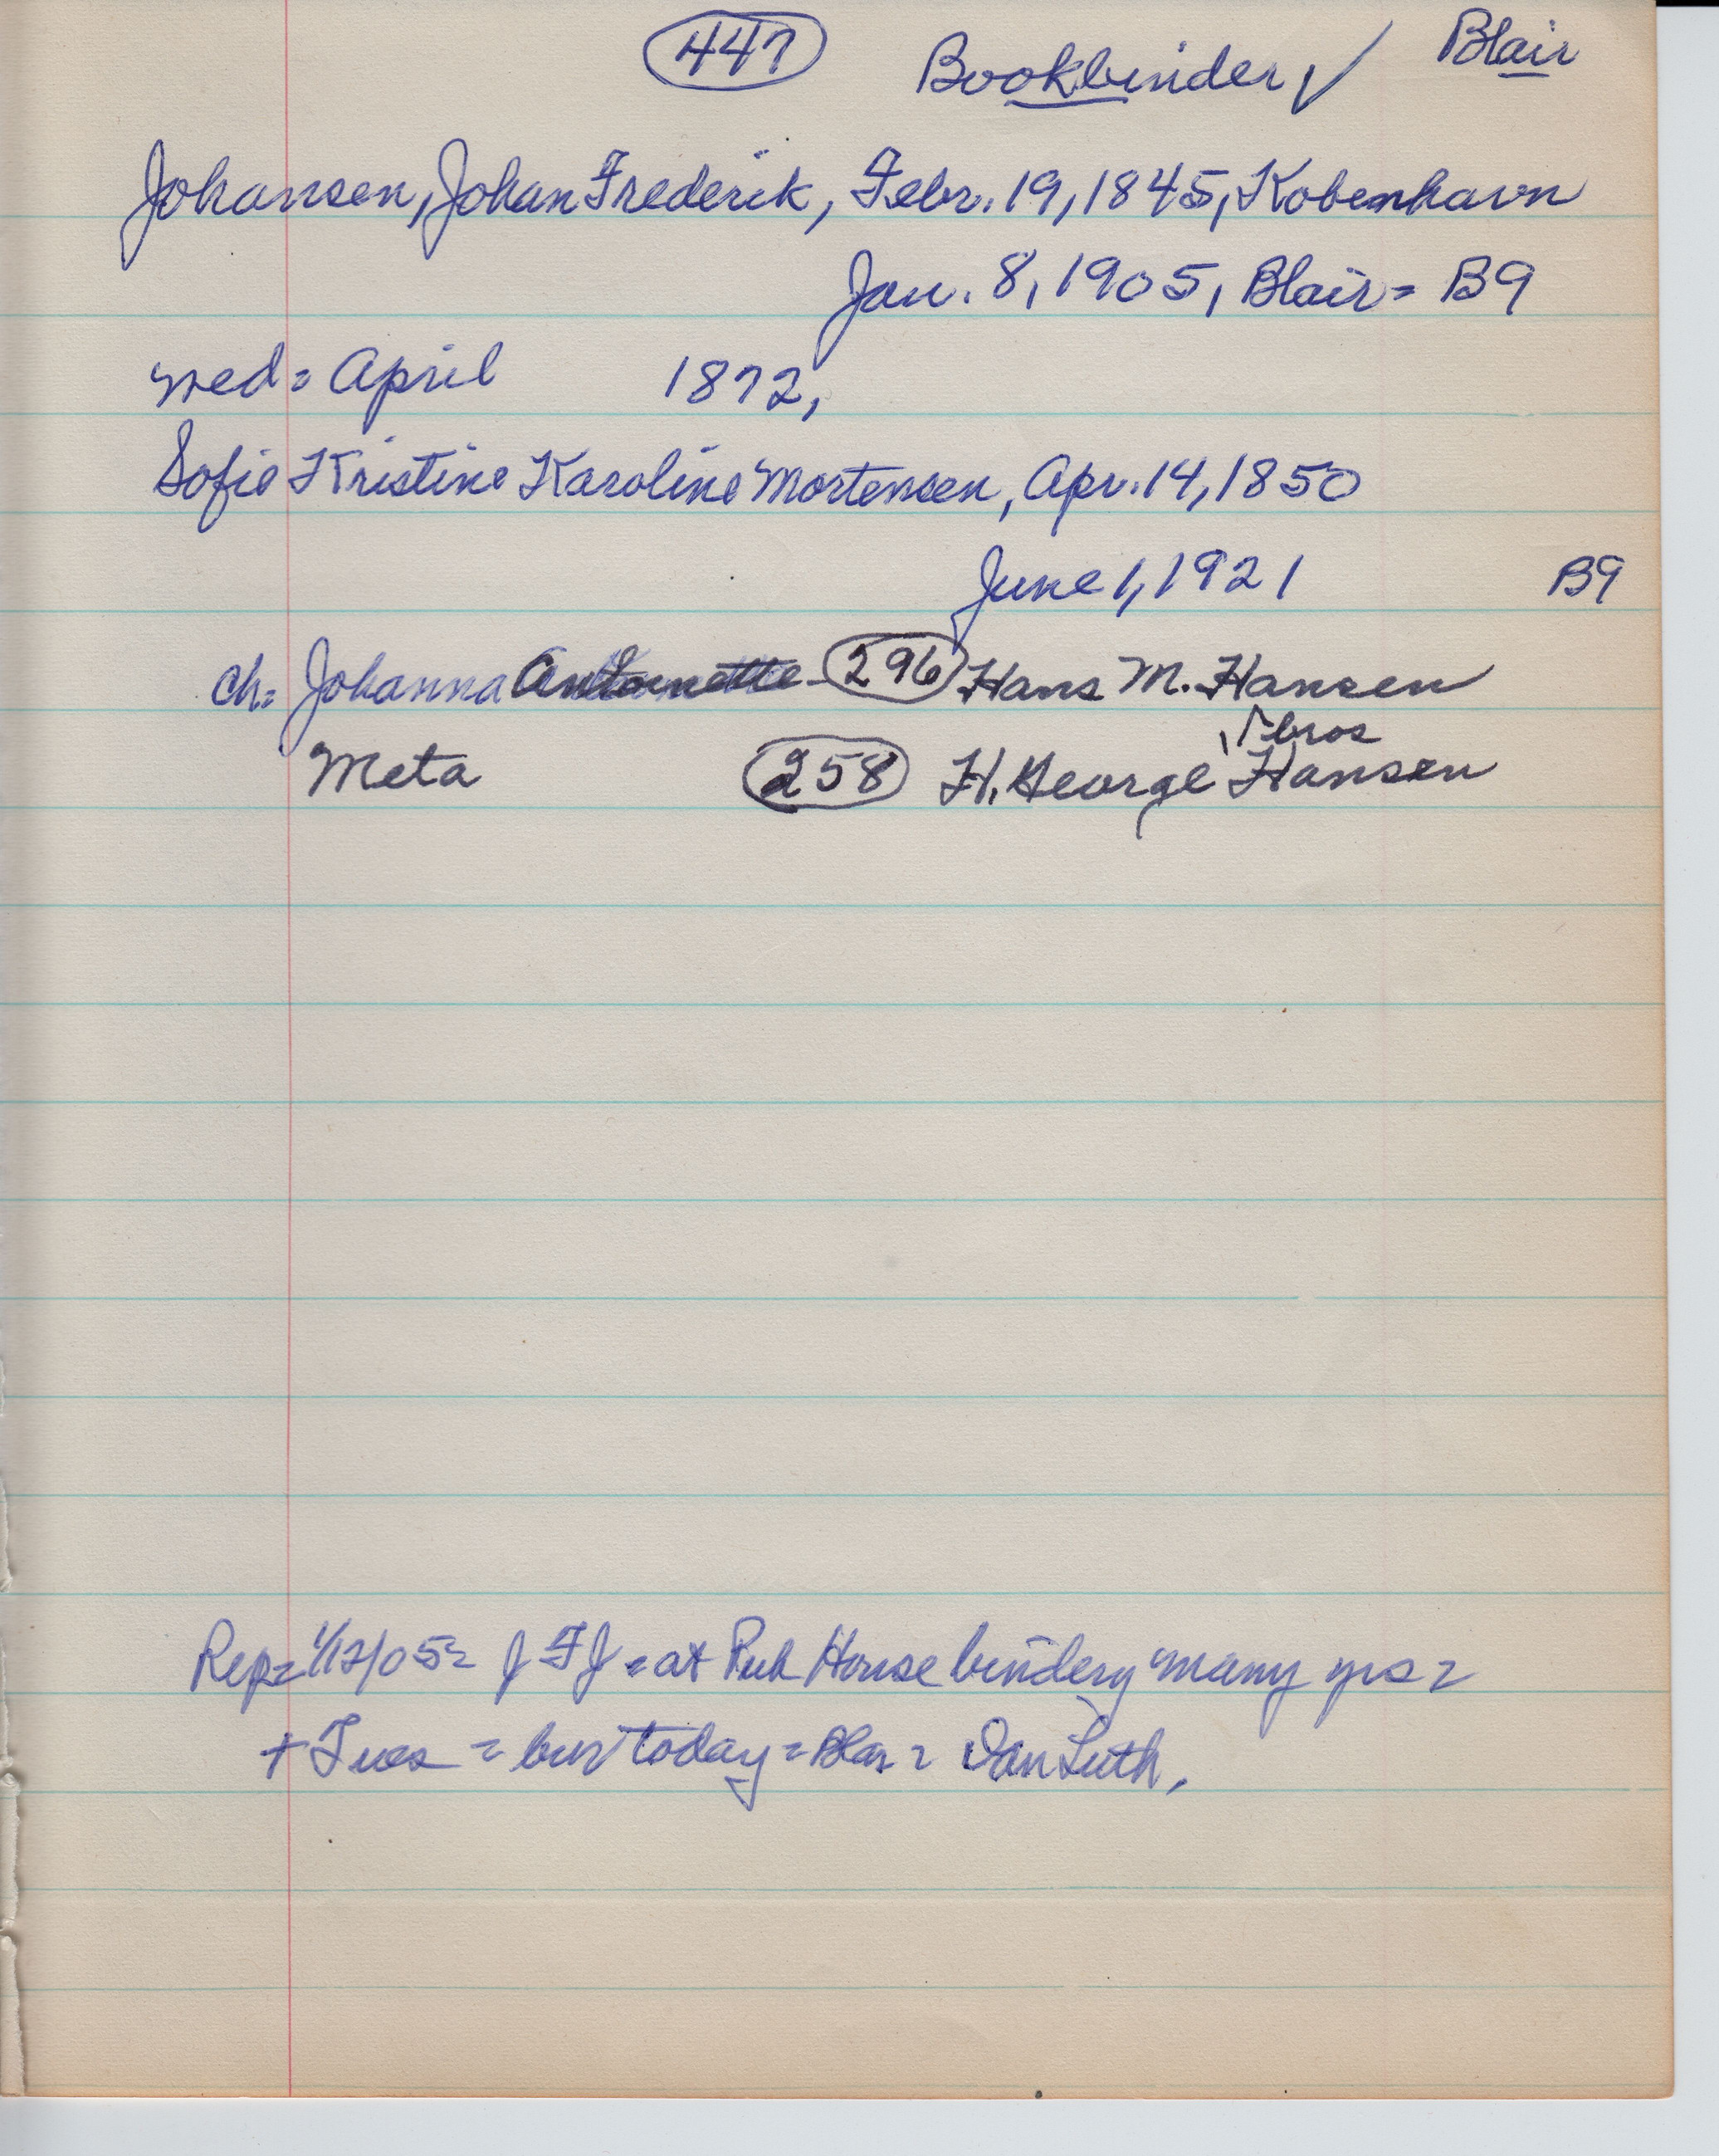 447 Bookbinder ✓ Blair
Johansen, Johan Frederik, Febr. 19, 1845, Kobenhavn
Jan. 8, 1905, Blair = B9
wed = April 1872,
Sofie Kristine Karoline Mortensen, Apr. 14, 1850
June 1, 1921 B9
ch = Johanna Antoinette - 296 Hans M. Hansen
bros
Meta 258 H. George Hansen
Rep = 1/12/05 = J F J = at Pub House bindery many yrs =
+ Tues = bur today = Blair = Dan Luth.